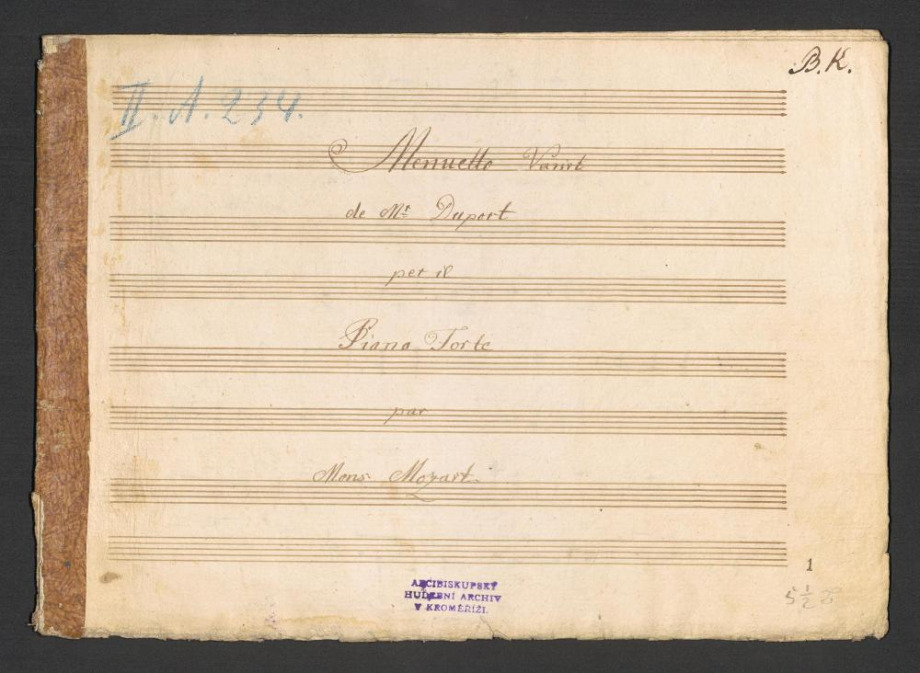 B. K.
II. A. 234.
Menuetto Variè
de Mr Duport
per il
Piano Forte
par
Mons: Mozart.
ARCIBISKUPSKÝ
HUDEBNÍ ARCHIV
V KROMĚŘÍŽI.
1